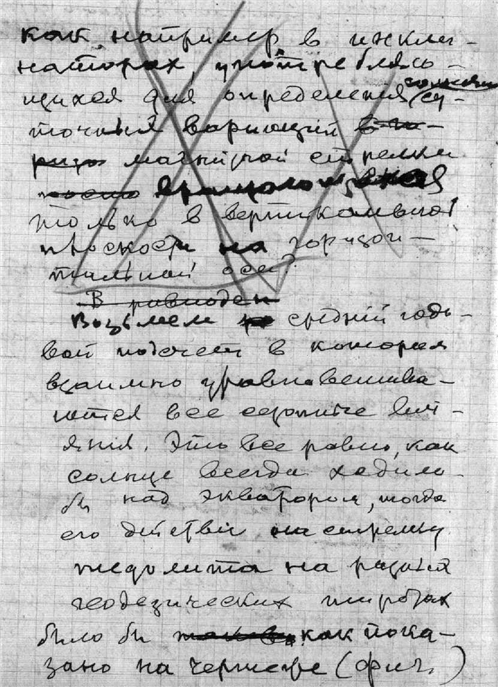 как например в инкли-
наторах, употребляю-
щихся для определения су-
точных вариаций
магнитной стрелки
вращающейся
только в вертикальной
плоскости на горизон-
тальной оси?
В равноден
Возьмем средний годо-
вой подсчет в котором
взаимно уравновешива-
ются все сезонные вли-
яния. Это все равно, как
солнце всегда ходило
бы над экватором, тогда
его действие на стрелку
теодолита на разных
геодезических широтах
было бы как пока-
зано на чертеже (фиг. )